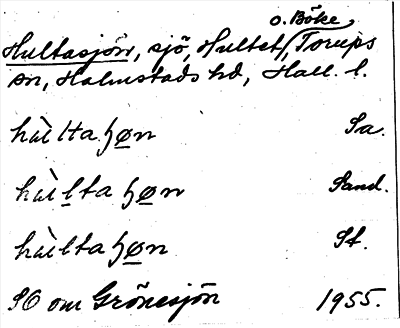 o. Böke
Hultasjön, sjö, Hultet, Torups
sn, Halmstads hd, Hall. l.
hùltaʃøn Sa.
hùlta ʃøn Sand.
hùltaʃøn St.
SO om Grönesjön 1955.